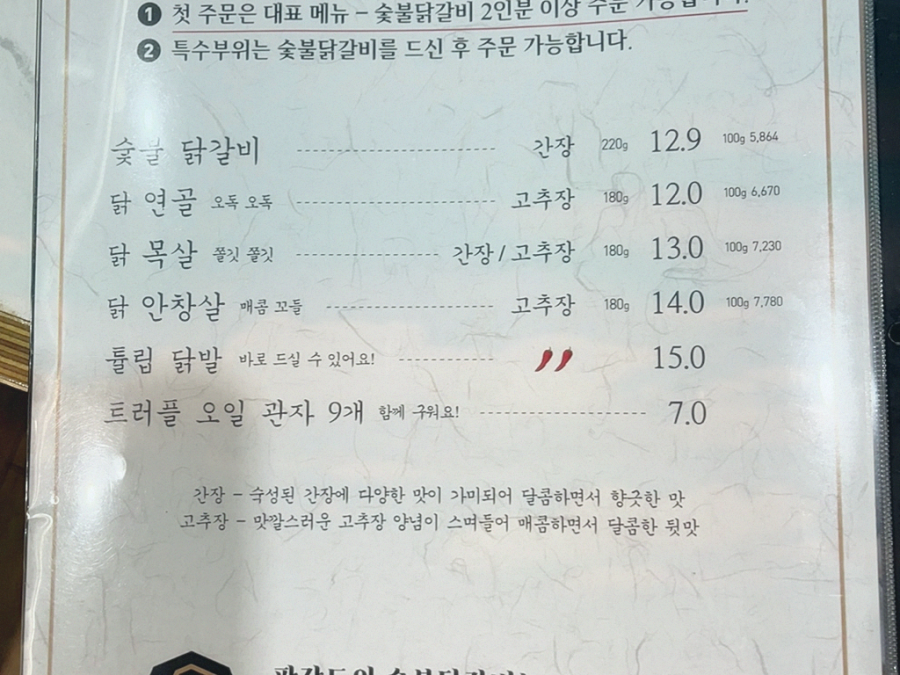 ❶ 첫 주문은 대표 메뉴 – 숯불닭갈비 2인분 이상 주문 가능합니다.
❷ 특수부위는 숯불닭갈비를 드신 후 주문 가능합니다.
숯불 닭갈비 간장 220g 12.9 100g 5,864
닭 연골 오독 오독 고추장 180g 12.0 100g 6,670
닭 목살 쫄깃 쫄깃 간장 / 고추장 180g 13.0 100g 7,230
닭 안창살 매콤 꼬들 고추장 180g 14.0 100g 7,780
튤립 닭발 바로 드실 수 있어요! 15.0
트러플 오일 관자 9개 함께 구워요! 7.0
간장 – 숙성된 간장에 다양한 맛이 가미되어 달콤하면서 향긋한 맛
고추장 – 맛깔스러운 고추장 양념이 스며들어 매콤하면서 달콤한 뒷맛